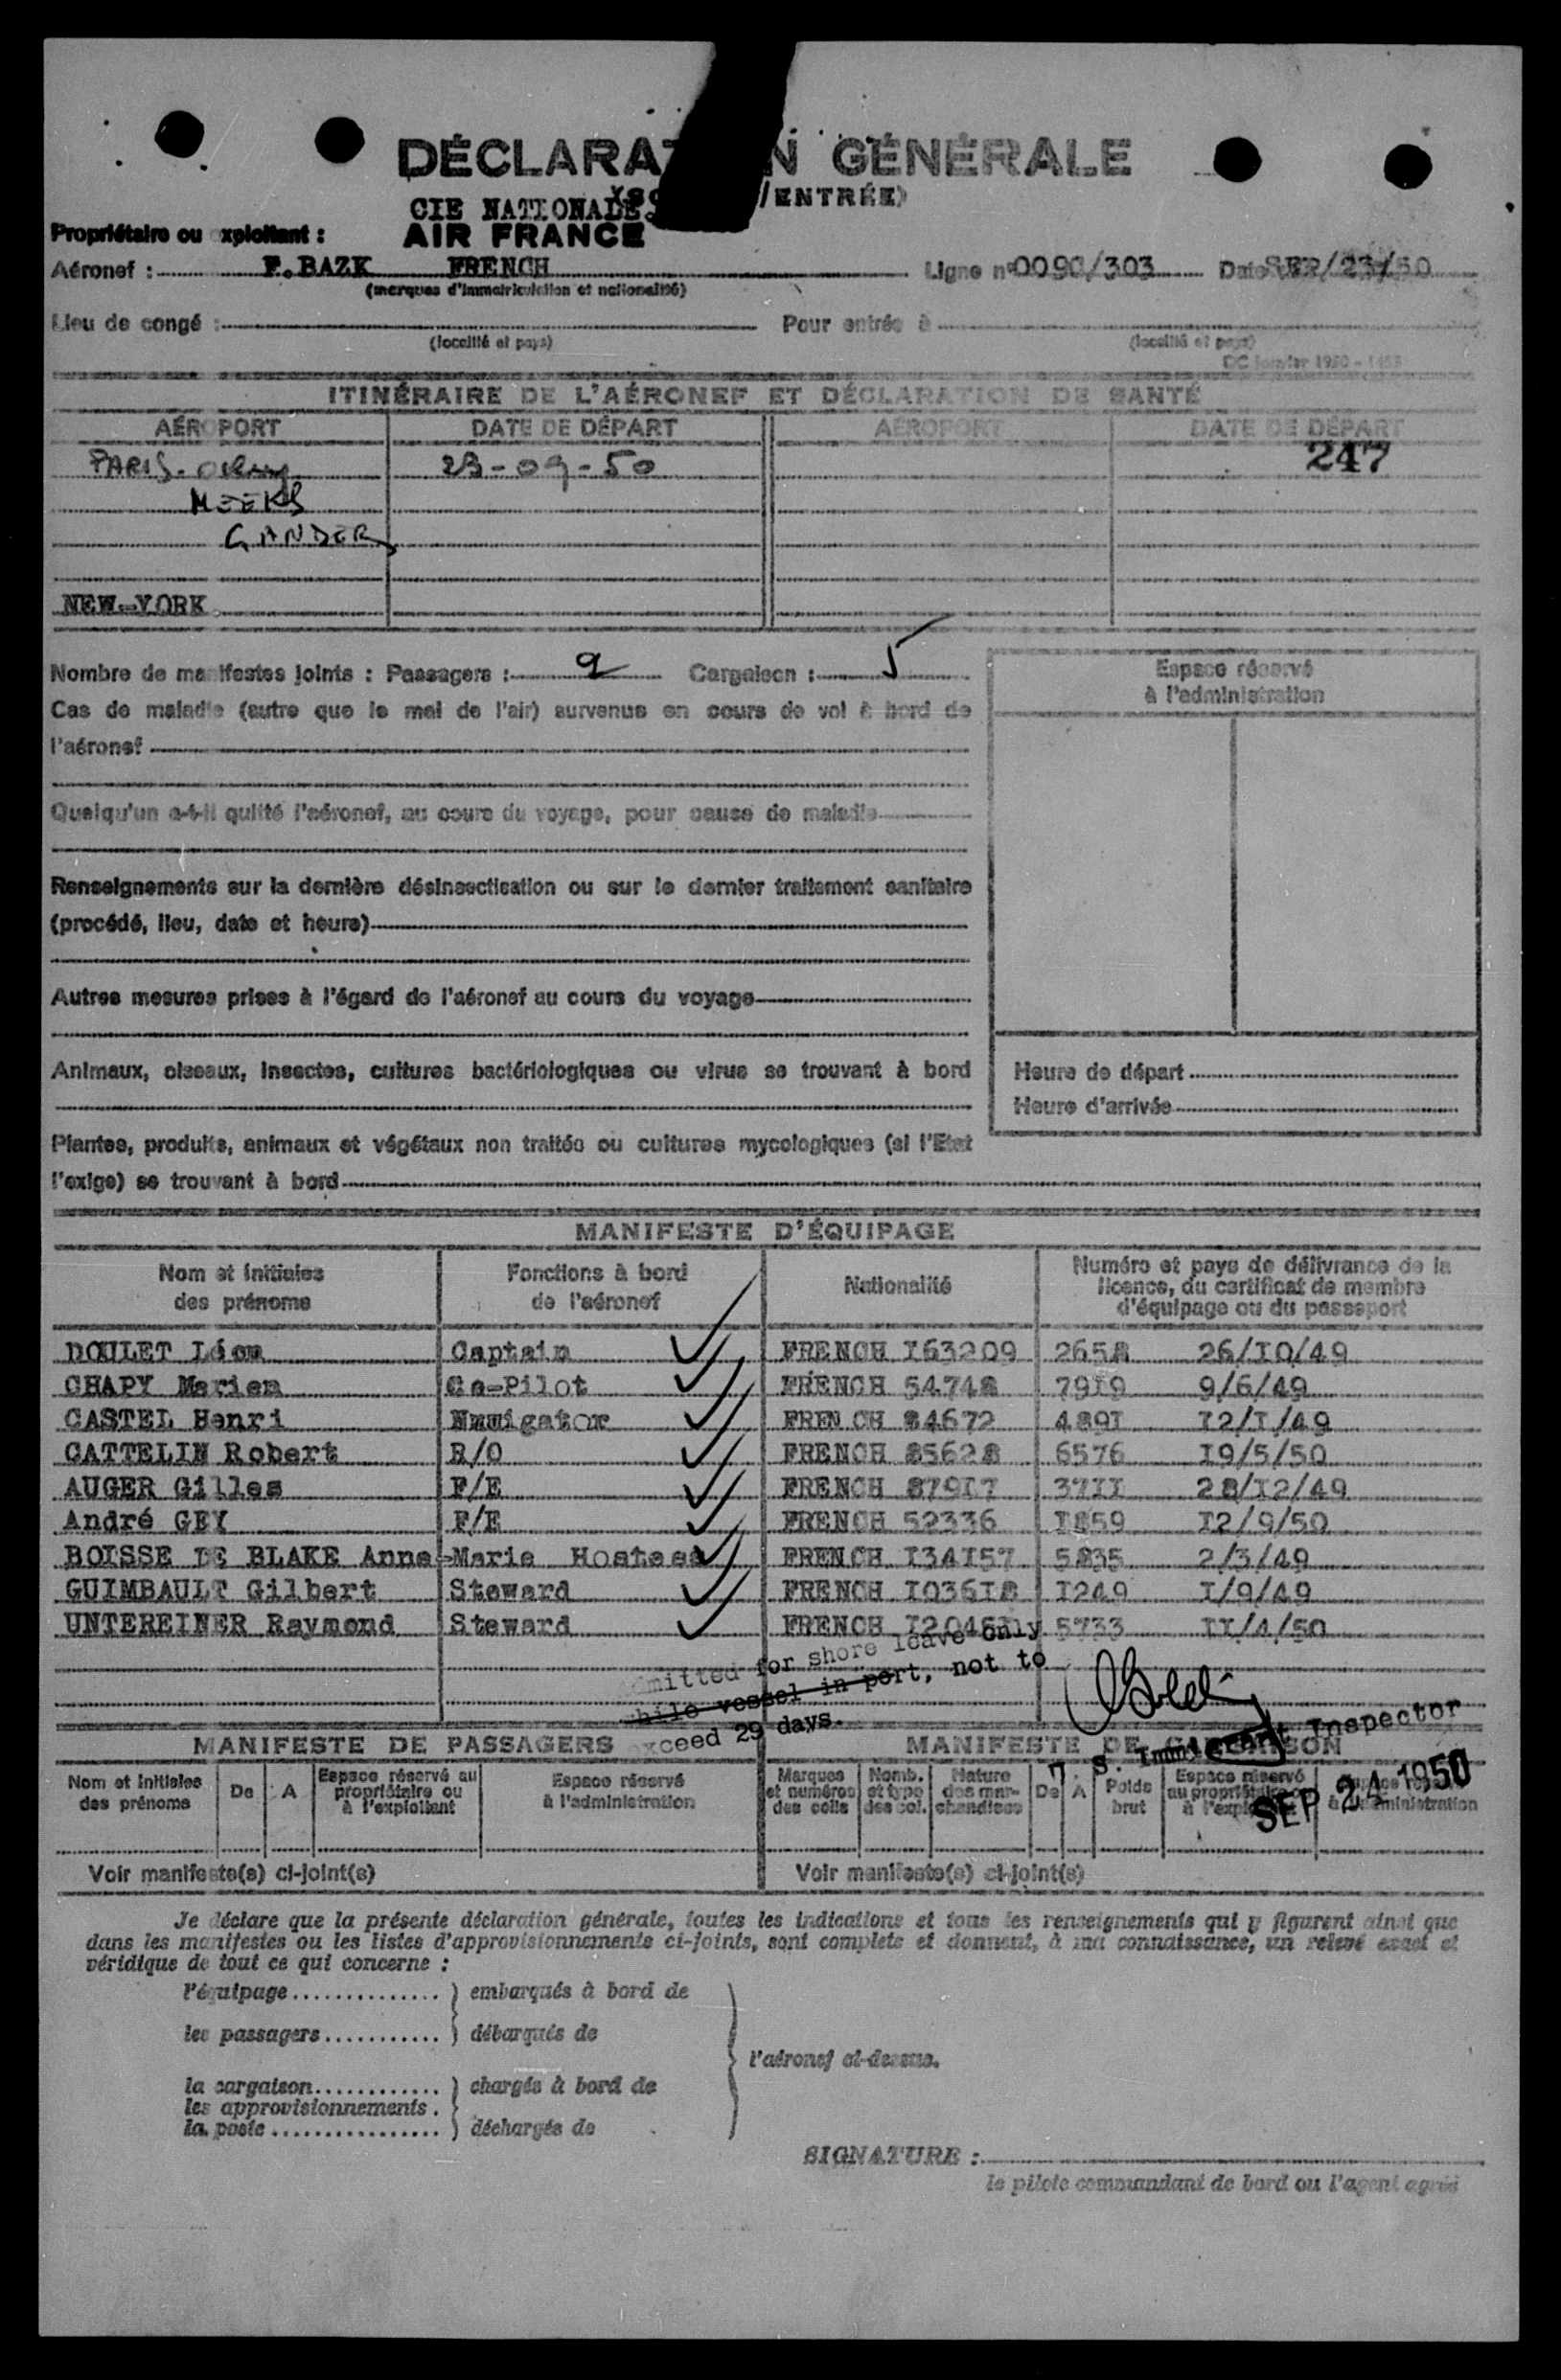 DÉCLARA N GÉNÉRALE
/ENTRÉE)
CIE NATIONALE
Propriétaire ou xploitant : AIR FRANCE
Aéronef : F.BAZK FRENCH Ligne n° 0090/303 Date SEP/23/50
(marques d'immatriculation et nationalité)
Lieu de congé : Pour entrée à
(localité et pays) (localité et pays)
ITINÉRAIRE DE L'AÉRONEF ET DÉCLARATION DE SANTÉ
AÉROPORT DATE DE DÉPART AÉROPORT DATE DE DÉPART
PARIS-Orly 23-09-50 247
MEEKS
GANDER
NEW-YORK
Nombre de manifestes joints : Passagers : 2 Cargaison : 5
Espace réservé
à l'administration
Cas de maladie (autre que le mal de l'air) survenus en cours de vol à bord de
l'aéronef
Quelqu'un a-t-il quitté l'aéronef, au cours du voyage, pour cause de maladie
Renseignements sur la dernière désinsectisation ou sur le dernier traitement sanitaire
(procédé, lieu, date et heure)
Autres mesures prises à l'égard de l'aéronef au cours du voyage
Animaux, oiseaux, insectes, cultures bactériologiques ou virus se trouvant à bord
Heure de départ
Heure d'arrivée
Plantes, produits, animaux et végétaux non traités ou cultures mycologiques (si l'Etat
l'exige) se trouvant à bord
MANIFESTE D'ÉQUIPAGE
Nom et initiales
des prénoms
Fonctions à bord
de l'aéronef
Nationalité
Numéro et pays de délivrance de la
licence, du certificat de membre
d'équipage ou du passeport
DOULET Léon Captain FRENCH I63209 2658 26/I0/49
CHAPY Marien Co-Pilot FRENCH 54748 79I9 9/6/49
CASTEL Henri FREN CH 84672 489I I2/I/49
CATTELIN Robert R/O FRENCH 85628 6576 I9/5/50
AUGER Gilles F/E FRENCH 879I7 37II 28/I2/49
André GEY F/E FRENCH 52336 I859 I2/9/50
BOISSE DE BLAKE Anne-Marie Hostess FRENCH I34I57 5835 2/3/49
GUIMBAULT Gilbert Steward FRENCH I036I8 I249 I/9/49
UNTEREINER Raymond Steward FRENCH 5733 II/4/50
mitted for shore leave only
hile vessel in port, not to
xceed 29 days.
S. Immigrant Inspector
SEP 24 1950
MANIFESTE DE PASSAGERS
MANIFESTE DE CARGAISON
Nom et initiales
des prénoms
De A
Espace réservé au
propriétaire ou
à l'exploitant
Espace réservé
à l'administration
Marques
et numéros
des colis
Nomb.
et type
des col.
Nature
des mar-
chandises
De A
Poids
brut
Espace réservé
au propriétaire o
à l'expl
à administration
Voir manifeste(s) ci-joint(s) Voir manifeste(s) ci-joint(s)
Je déclare que la présente déclaration générale, toutes les indications et tous les renseignements qui y figurent ainsi que
dans les manifestes ou les listes d'approvisionnements ci-joints, sont complets et donnent, à ma connaissance, un relevé exact et
véridique de tout ce qui concerne :
l'équipage.............. ) embarqués à bord de
les passagers........... ) débarqués de
l'aéronef ci-dessus.
la cargaison............ ) chargés à bord de
les approvisionnements .
la poste ................ ) déchargés de
SIGNATURE :
le pilote commandant de bord ou l'agent agréé